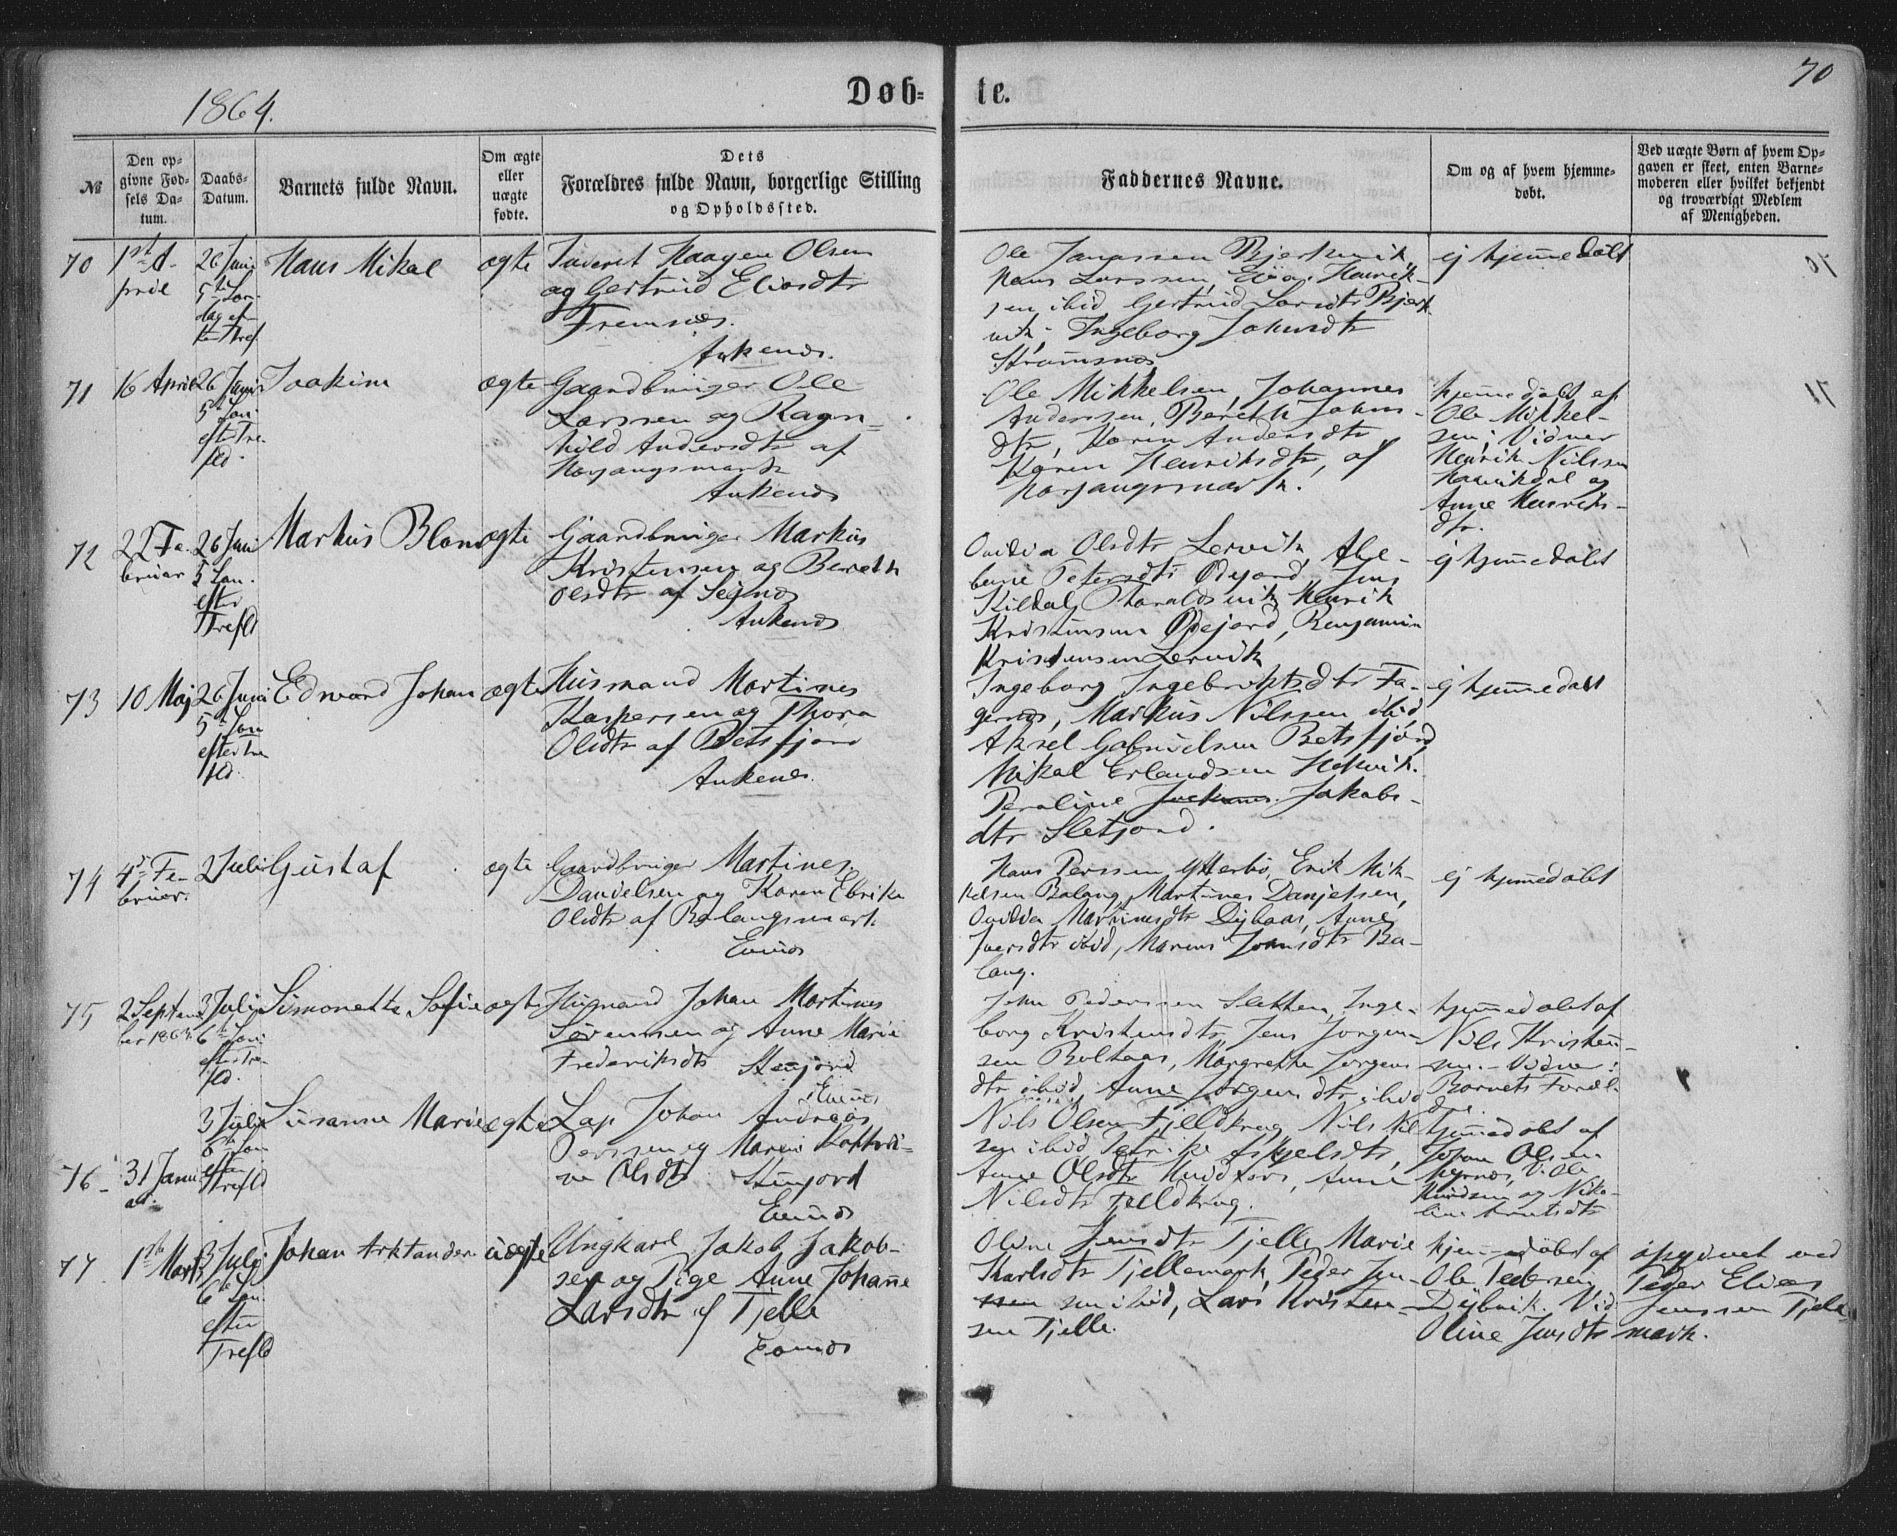 1864.
Døb-
te.
70
№
Den op-
givne Fød-
sels Da-
tum.
Daabs-
Datum.
Barnets fulde Navn.
Om ægte
eller
uægte
fødte.
Dets
Forældres fulde Navn, borgerlige Stilling
og Opholdssted.
Faddernes Navne.
Om og af hvem hjemme-
døbt.
Ved uægte Børn af hvem Op-
gaven er skeet, enten Barne-
moderen eller hvilket bekjendt
og troværdigt Medlem
af Menigheden.
70
1ste A-
pril
26 Juni
5te Søn-
dag ef-
ter Tref
Hans Mikal
ægte
Haagen Olsen
og Gertrud Eliasdtr
Fremnes.
Ankenes.
Ole Bjerkvik,
Hans Larssen, Henrik-
sen ibid, Gertrud Larsdtr Bjerk
vik, Ingeborg Johnsdtr
Strømsnes
ej hjemmedøbt
71
16 April
26 Juni
5te Søn.
efter Tre-
fld.
Joakim
ægte
Gaardbruger Ole
Larssen og Ragn-
hild Andersdtr af
Herjangsmark
Ankenes
Ole Mikkelsen, Johannes
Anderssen, Bereth Johns-
dtr, Karen Andersdtr
Karen Henriksdtr, af
Herjangsmark.
hjemmedøbt af
Ole Mikkel-
sen; Vidner
Henrik Nilssen
og
Anne Henriks-
dtr.
72
22 Fe-
bruar
26 Juni
5 Søn.
efter
Trefld
Markus Blom
ægte
Gaardbruger Markus
Kristensen og Bereth
Olsdtr af Segnes
Ankenes
Ovidia Olsdtr Lervik, Abe-
Petersdtr Øijord, Jens
Kildal, Haraldsvik, Henrik
Kristensen Øijord, Benjamin
Kristensen Lervik
ej hjemmedøbt
73
10 Maj
26 Juni
5te Søn
efter Tre
fld.
Edward Johan
ægte
Husmand Martines
Kaspersen og Thora
Olsdtr af Beisfjord
Ankenes
Ingeborg Ingebrigtsdtr Fa-
gernes, Markus Nilssen ibid,
Aksel Gabrielsen Beisfjord
Mikal Erlandsen
Peroline Jakobs-
dtr
ej hjemmedøbt
74
4de Fe-
bruar.
2 Juli
Gustaf
ægte
Gaardbruger Martines
Danielsen og Karen Ebrika
Olsdtr af Balangsmark.
Evenes
Hans Perssen Ytterbø, Erik Mik-
kelsen Balang, Martines Danjelsen,
Ovidia Martinusdtr Dybaas, Anne
Iversdtr ibid, Maren Johnsdtr Ba-
lang.
ej hjemmedøbt
75
2 Septem
ber 1863
3 Juli
6te Søn.
efter Tre-
fld.
Simonette Sofie
ægte
Husmand Johan Martines
Sørenssen og Anne Marie
Frederiksdtr Stenjord
Evenes
John Pederssen Sletten, Inge-
borg Kristensdtr, Jens Jørgen-
sen Boltaas, Margrethe Jørgens
dtr ibid, Anne Jørgensdtr ibid
hjemmedøbt af
Nils Kristen-
sen.- Vidner:
Barnets Foræl-
dre
76
31 Janu
ar.
3 Juli
6te Søn
efter
Trefld
Susanne Marie
ægte
Lap Johan Andreas
Perssen og Maren
Olsdtr Stenjord
Evenes
Nils Olsen Fjeldkrog, Nils Nil
sen ibid,
Anne Olsdtr Anne
Nilsdtr Fjeldkrog.
hjemmedøbt af
Johan Olsen
V. Ole
Knudsen og Niko-
line
77
1ste Marts
3 Juli
6te Søn.
efter
Trefld
Johan Arktander
uægte
Ungkarl Jakob Jakob-
sen og Pige Anne Johanne
Larsdtr af Tjelle
Evenes
Oline Jensdtr Tjelle, Marie
Karlsdtr Tjellemark, Peder Jen-
sen ibid, Lars Kristen-
sen Tjelle.
hjemmedøbt af
Ole Pedersen
Dybvik. Vid
Oline Jensdtr
opgivet ved
Peder Elias
Jenssen Tjelle-
mark.